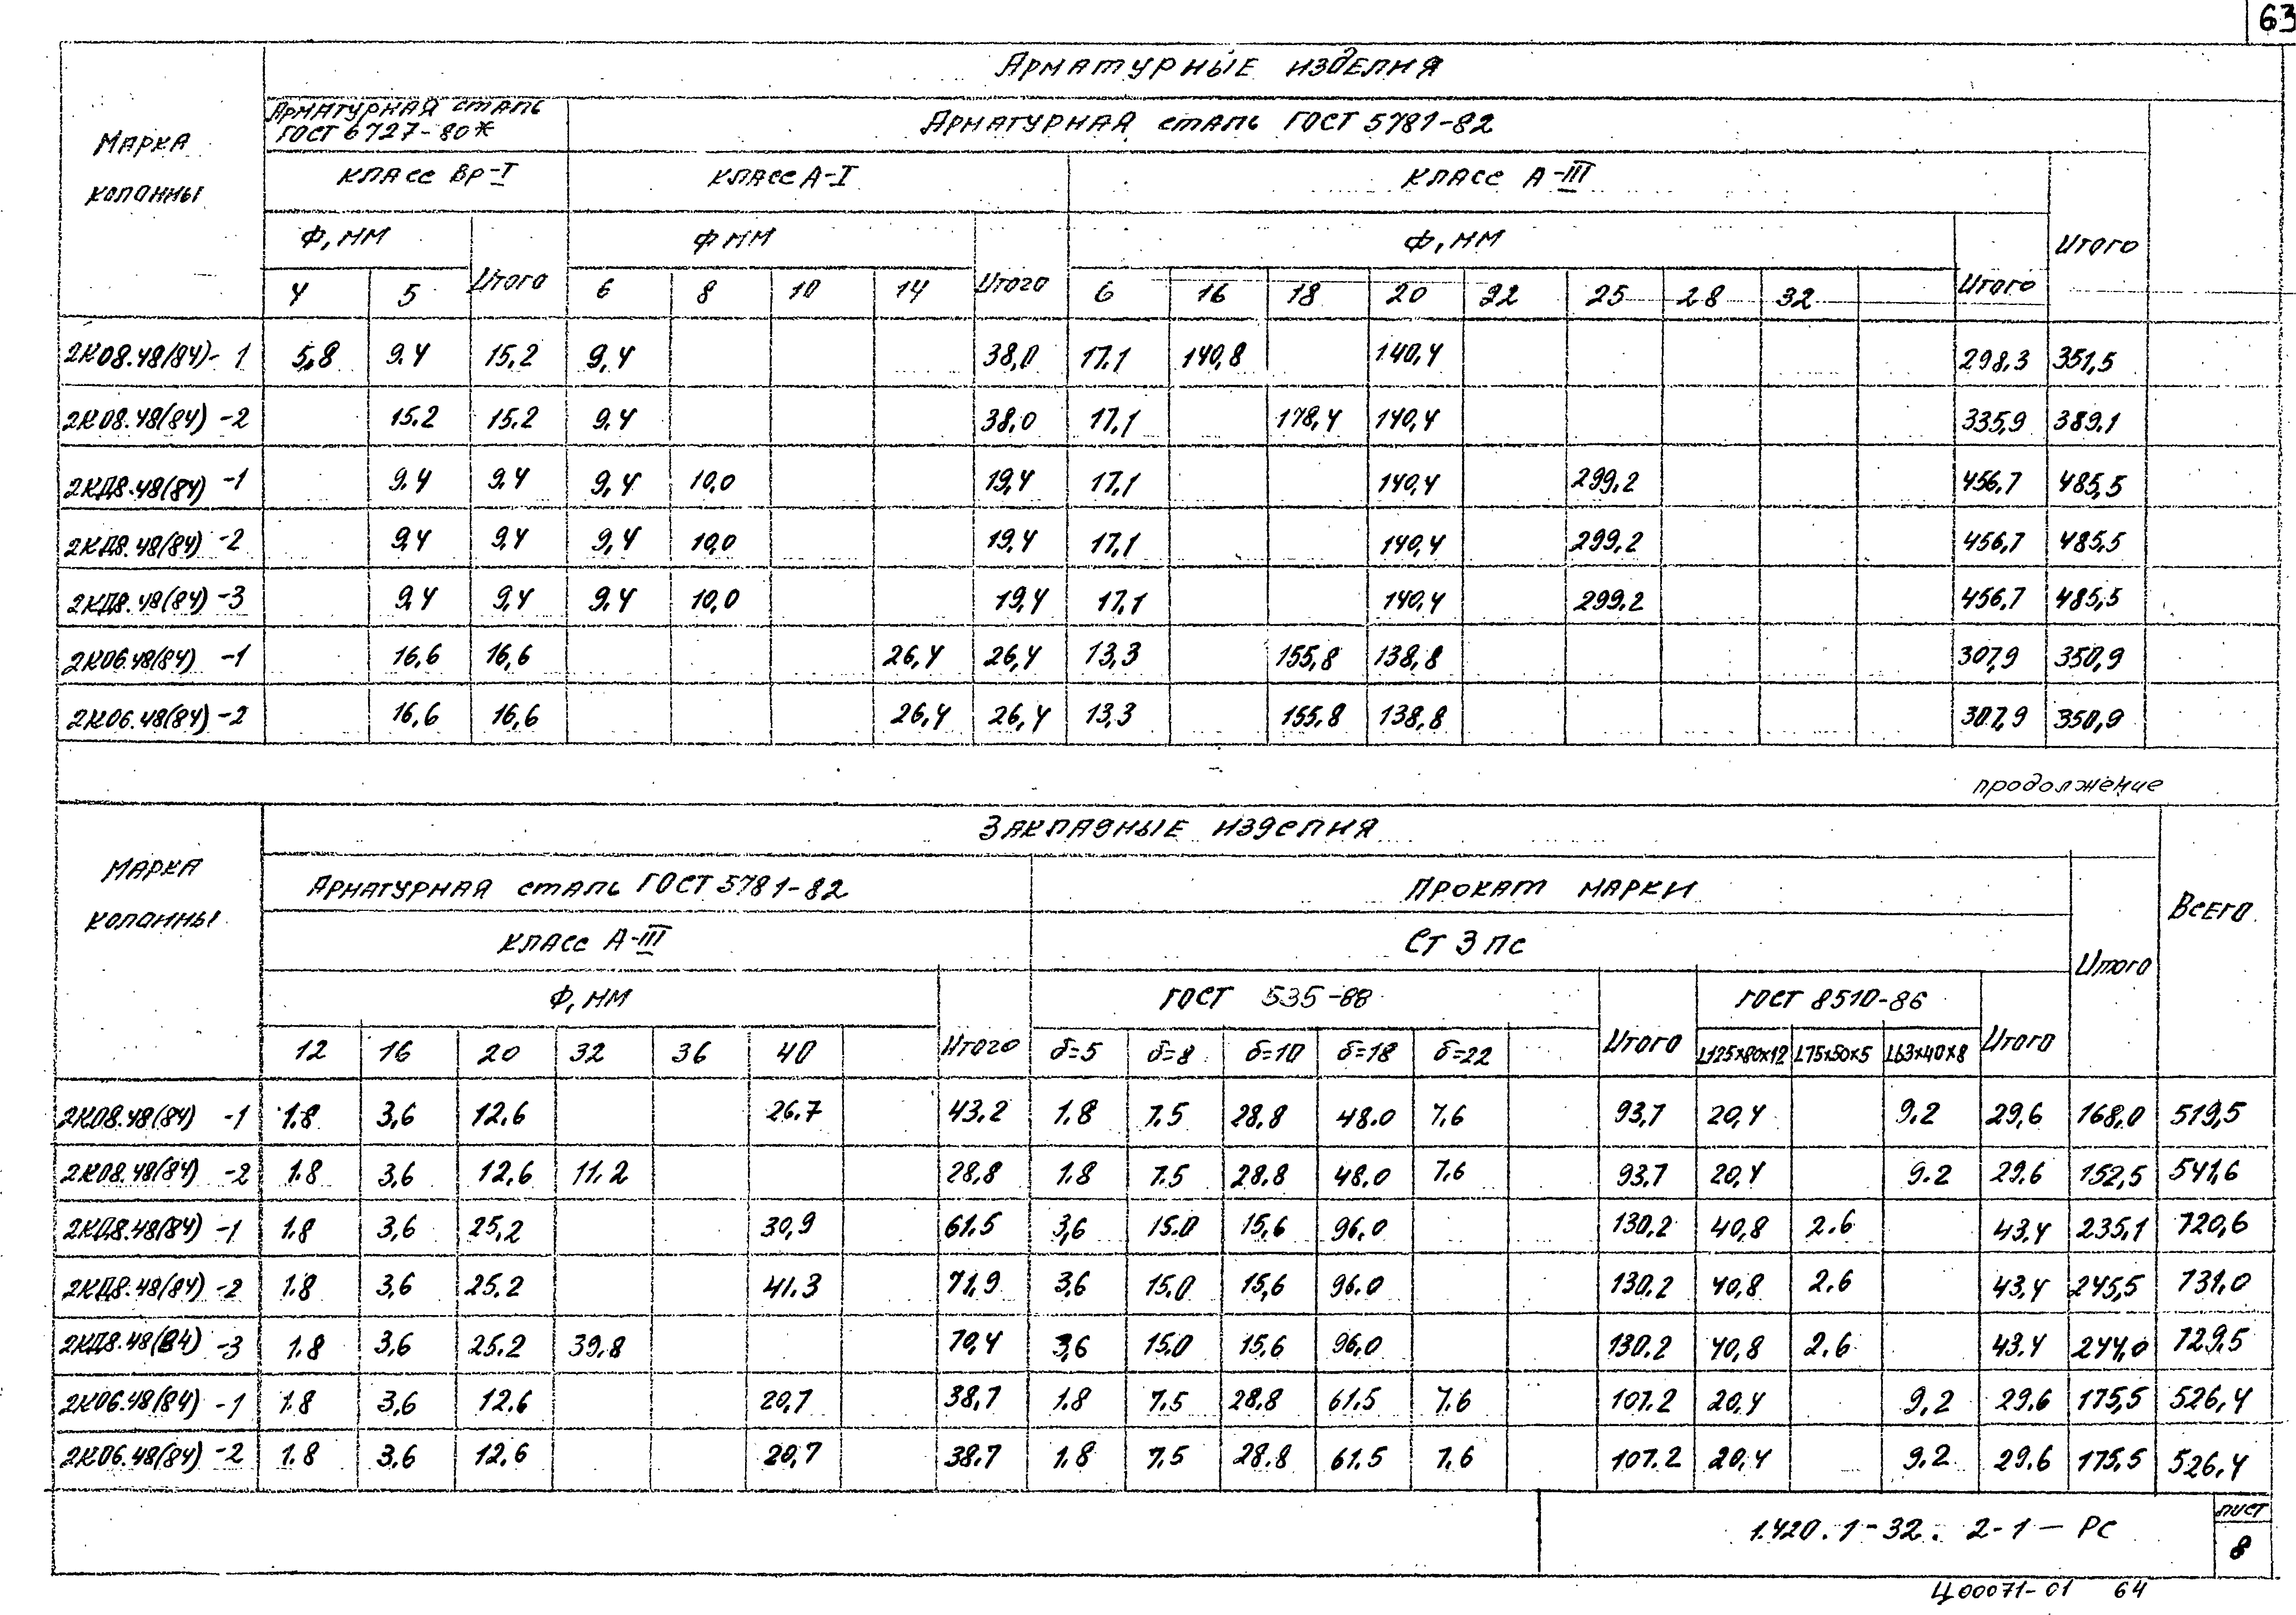 63
Арматурные изделия
Марка колонны
Арматурная сталь ГОСТ 6727-80ж
Арматурная сталь ГОСТ 5781-82
класс Вр-I
класс А-I
класс А-III
Ф, мм
Итого
Ф мм
Итого
Ф, мм
Итого
Итого
4 5 6 8 10 14 6 16 18 20 22 25 28 32
2К08.48(84)-1 5,8 9.4 15.2 9,4 38,0 17.1 140,8 140,4 298.3 351,5
2К08.48(84)-2 15.2 15.2 9.4 38.0 17.1 178,4 140,4 335,9 389.1
2КД8.48(84)-1 9.4 9.4 9,4 10,0 19,4 17.1 140,4 299.2 456,7 485,5
2КД8.48(84)-2 9,4 9,4 9,4 10,0 19,4 17.1 140,4 299.2 456,7 485,5
2КД8.48(84)-3 9,4 9,4 9,4 10,0 19,4 17.1 140,4 299.2 456,7 485,5
2К06.48(84)-1 16,6 16,6 26,4 26,4 13,3 155,8 138,8 307,9 350,9
2К06.48(84)-2 16,6 16,6 26,4 26,4 13,3 155,8 138,8 307,9 350,9
продолжение
Закладные изделия
Марка колонны
Арматурная сталь ГОСТ 5781-82
Прокат марки
Всего
класс А-III
Ст 3 пс
Итого
Ф, мм
Итого
ГОСТ 535-88
Итого
ГОСТ 8510-86
Итого
12 16 20 32 36 40 δ=5 δ=8 δ=10 δ=18 δ=22 L125х80х12 L75х50х5 L63х40х8
2К08.48(84)-1 1.8 3,6 12.6 26.7 43.2 1.8 7.5 28.8 48.0 7.6 93,7 20,4 9.2 29,6 168,0 519,5
2К08.48(84)-2 1.8 3,6 12.6 11.2 28,8 1.8 7.5 28.8 48.0 7.6 93.7 20,4 9.2 29.6 152,5 541,6
2КД8.48(84)-1 1.8 3,6 25,2 30,9 61.5 3,6 15.0 15,6 96.0 130.2 40,8 2.6 43,4 235,1 720,6
2КД8.48(84)-2 1.8 3,6 25.2 41.3 71,9 3,6 15.0 15,6 96.0 130.2 40,8 2.6 43,4 245,5 731.0
2КД8.48(84)-3 1.8 3,6 25.2 39,8 70,4 3,6 15.0 15,6 96,0 130.2 40,8 2.6 43.4 244,0 729,5
2К06.48(84)-1 1.8 3,6 12.6 20,7 38,7 1.8 7.5 28.8 61.5 7.6 107.2 20,4 9,2 29.6 175,5 526,4
2К06.48(84)-2 1.8 3,6 12.6 20,7 38.7 1.8 7.5 28.8 61.5 7.6 107.2 20,4 9.2 29.6 175,5 526,4
1.420.1-32. 2-1-РС
лист
8
Ц00071-01 64